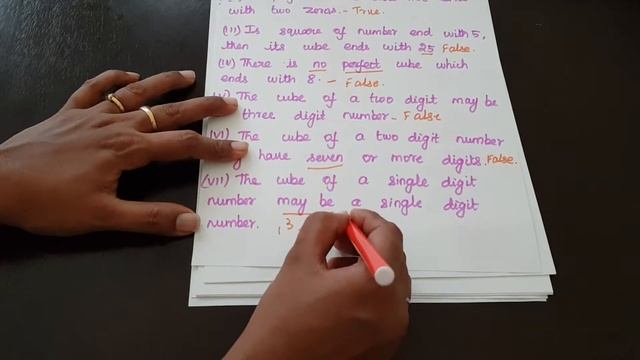 with two zeros. - True.
(iii) Is square of number end with 5,
then its cube ends with 25 False.
(iv) There is no perfect cube which
ends with 8. - False.
The cube of a two digit may be
three digit number - False
(vi) The cube of a two digit number
have seven or more digits. False.
(vii) The cube of a single digit
number may be a single digit
number. 1³